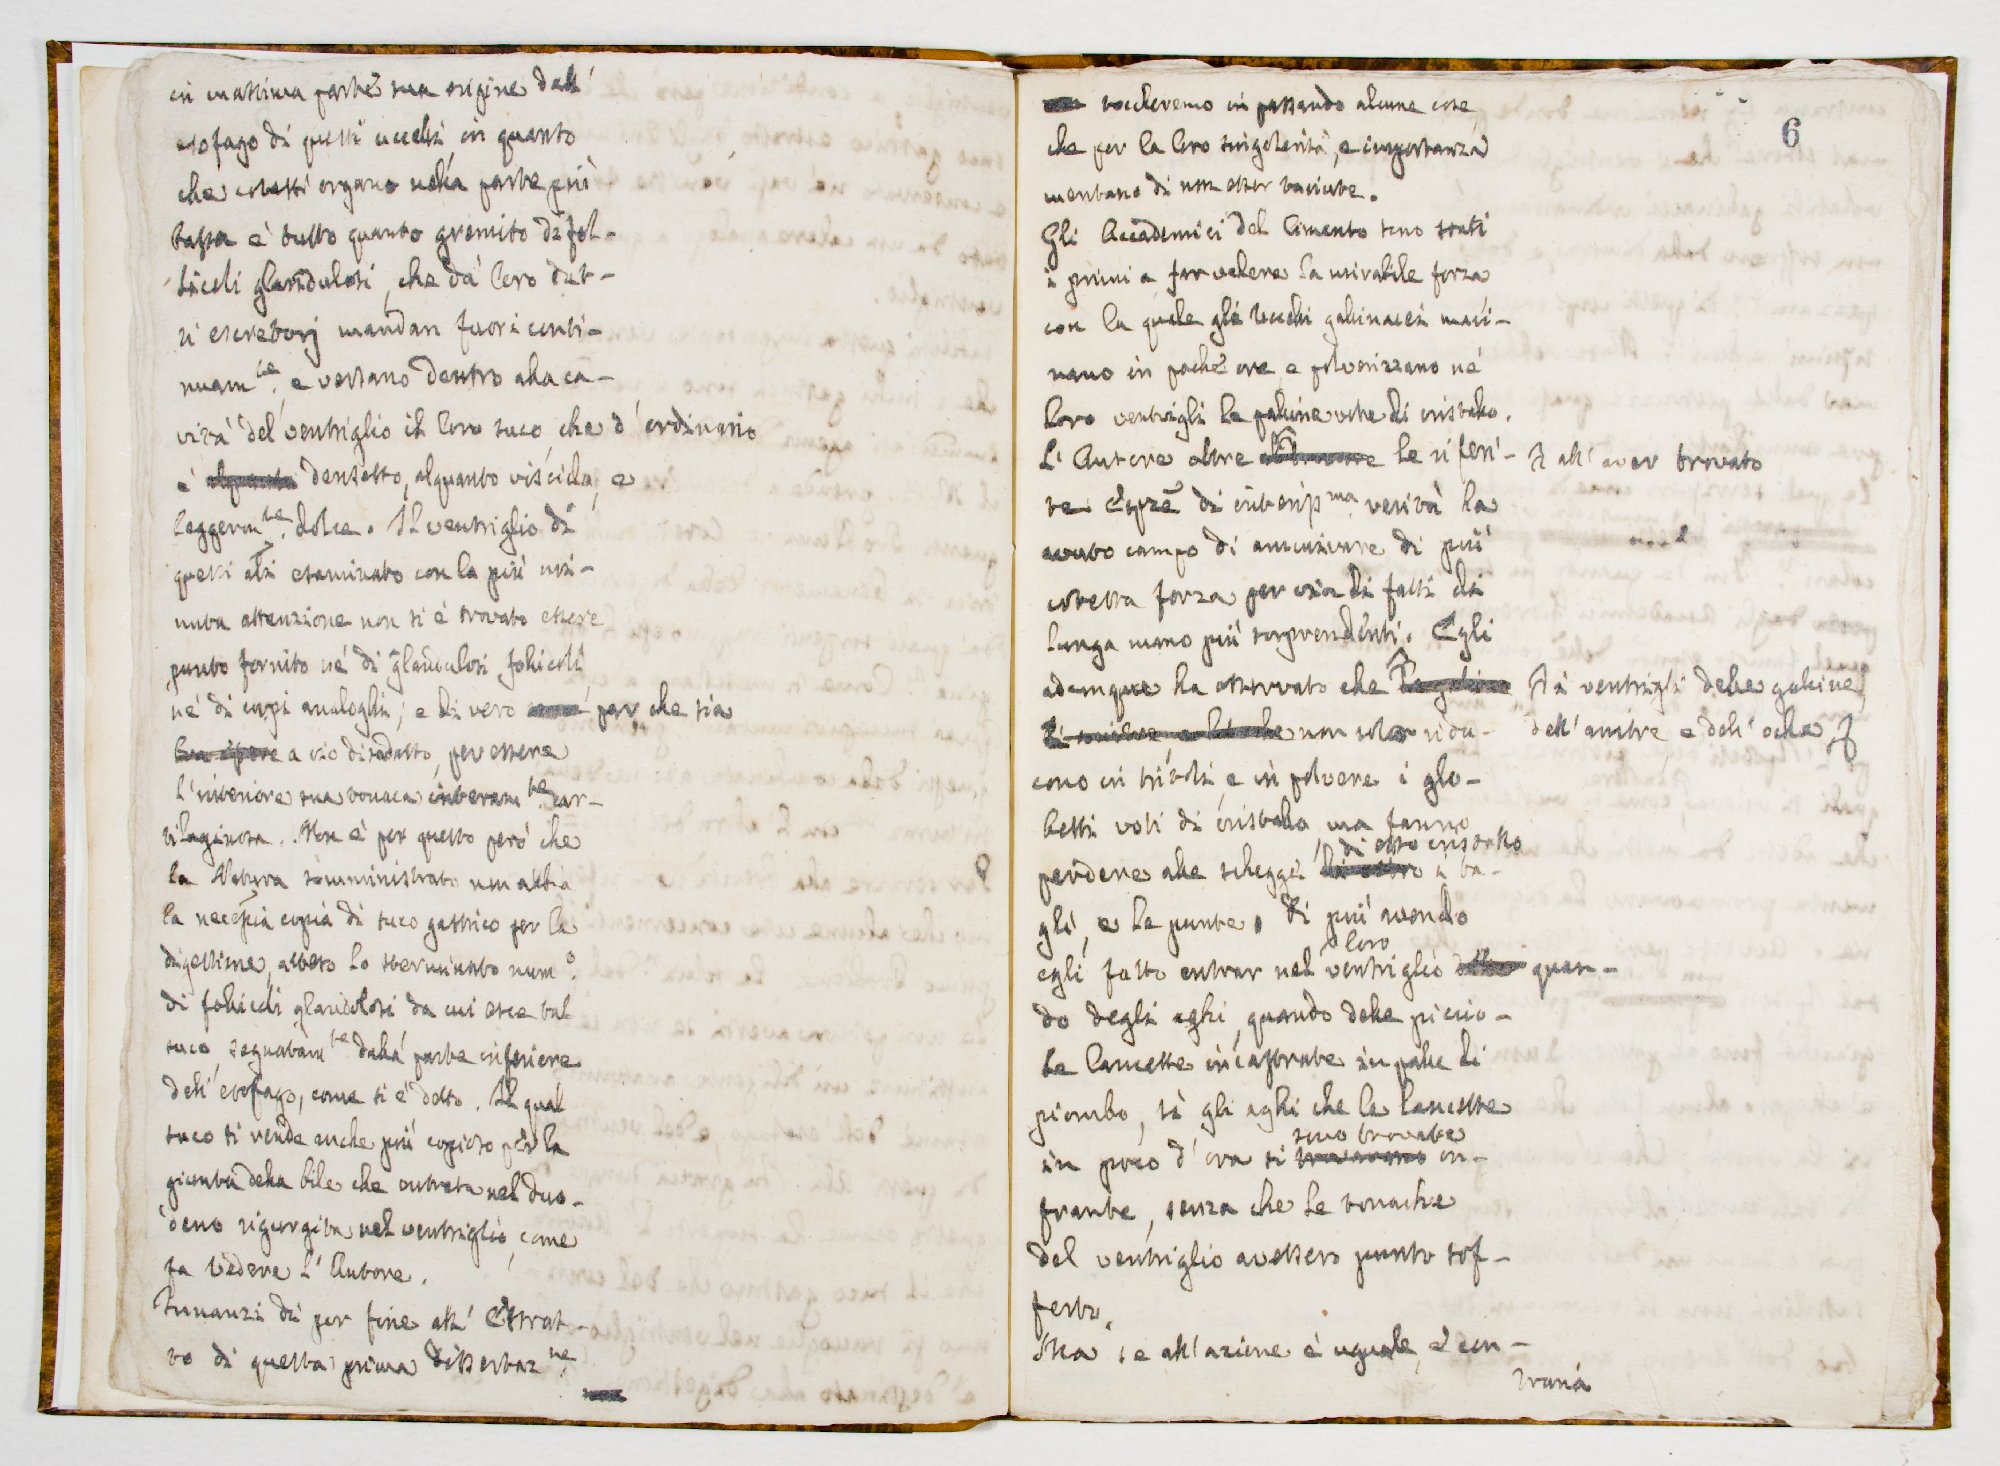 in massima parte sua origine dall'
esofago di questi uccelli in quanto
che cotesto organo nella parte più
bassa è tutto quanto gremito di fol-
licoli glandulosi, che dà loro dut-
ti escretorj mandan fuori conti-
nuam.te, e versano dentro alla ca-
vità del ventriglio il loro suco che d'ordinario
è alquanto densetto, alquanto viscido, e
leggerm.te dolce. Il ventriglio di
questi altri esaminato con la più mi-
nuta attenzione non si è trovato essere
punto fornito nè di glandulosi follicoli
nè di corpi analoghi; e di vero par che sia
a ciò disadatto, per essere
l'interiore sua tonaca interam.te car-
tilaginosa. Non è per questo però che
la Natura somministrato non abbia
la necessaria copia di suco gastrico per la
digestione, atteso lo sterminato num.o
di follicoli glandulosi da cui esce tal
suco segnatam.te dalla parte inferiore
dell'esofago, come si è detto. Il qual
suco si rende anche più copioso per la
giunta della bile che entrata nel duo-
deno rigurgita nel ventriglio, come
fa vedere l'Autore.
Innanzi di por fine all'Estrat-
to di questa prima Dissertaz.ne
6
toccheremo in passando alcune cose
che per la loro singolarità, e importanza
meritano di non esser taciute.
Gli Accademici del Cimento sono stati
i primi a far vedere la mirabile forza
con la quale gli Uccelli gallinacei maci-
nano in poche ore, e polverizzano ne'
loro ventrigli le palline vote di cristallo.
L'Autore oltre le riferi- all'aver trovato
te Esp.ze di interiss.ma verità ha
avuto campo di ammirare di più
cotesta forza per via di fatti di
lunga mano più sorprendenti. Egli
adunque ha osservato che i ventrigli delle galline,
non solo ridu- dell'anitre, e dell'oche
cono in tritoli, e in polvere i glo-
betti voti di cristallo, ma fanno
di esso cristallo
perdere alle schegge i ta-
gli, e le punte. Di più avendo
loro
egli fatto entrar nel ventriglio quan-
do degli aghi, quando delle piccio-
le lancette incastrate in palle di
piombo, sì gli aghi che le lancette
sono trovate
in poco d'ora si trovarono in-
frante, senza che le tonache
del ventriglio avessero punto sof-
ferto.
Ma se all'azione è uguale, e con-
traria